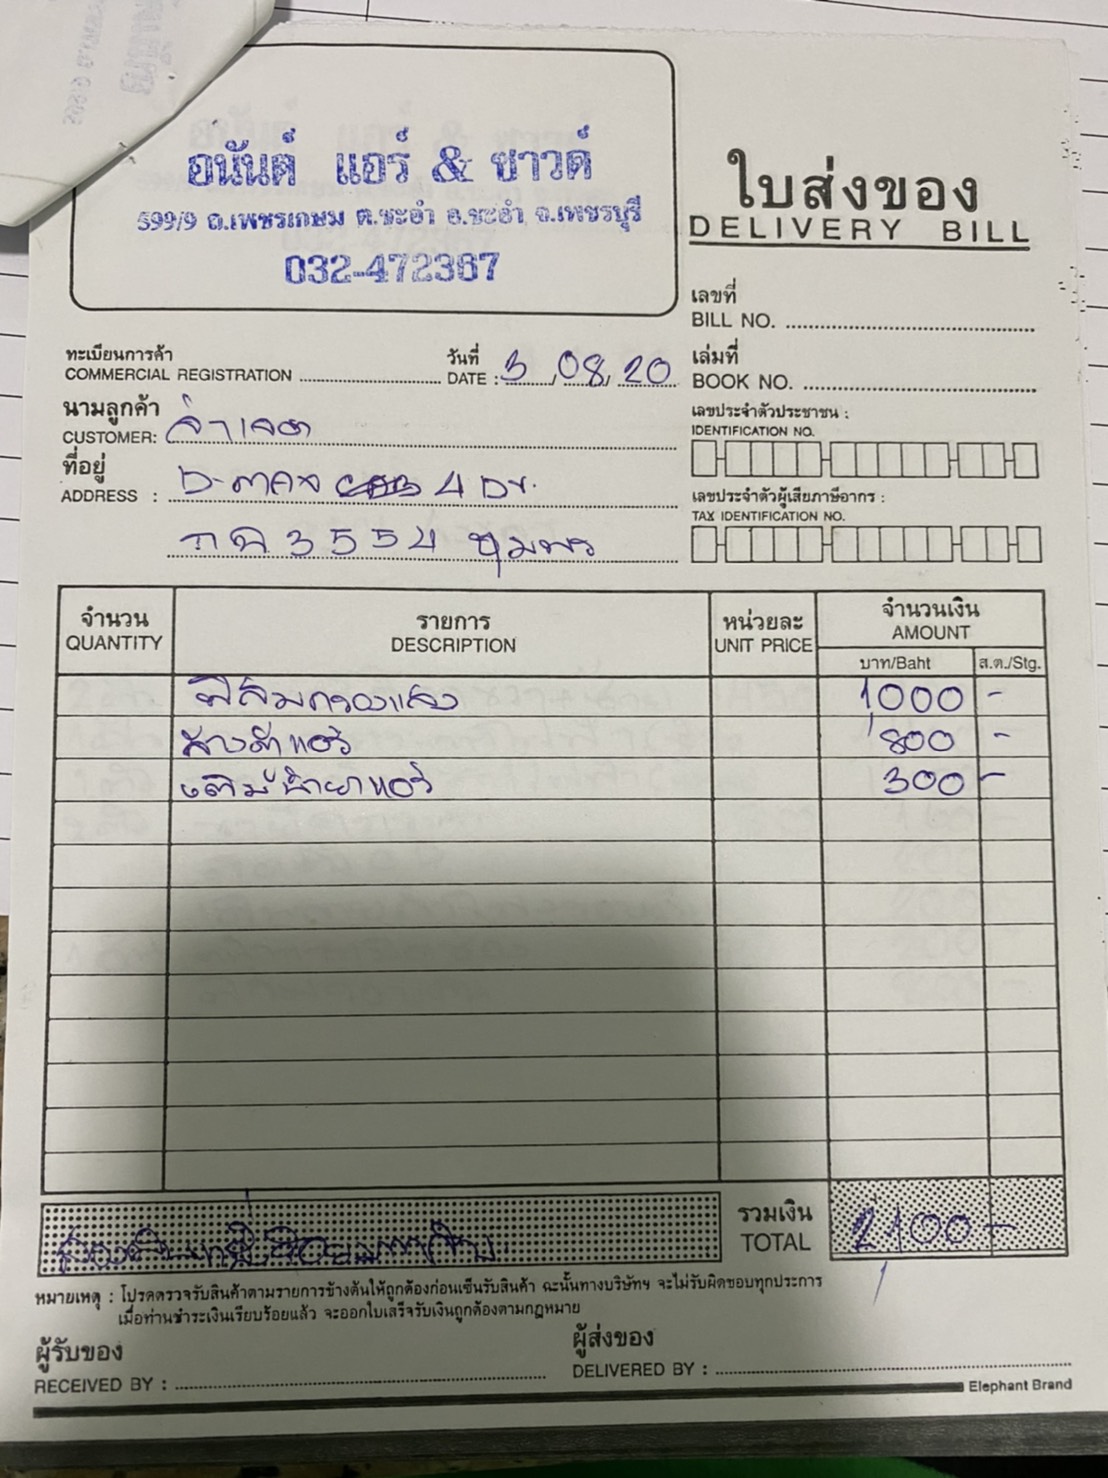 อนันต์ แอร์ & ซาวด์
599/9 ถ.เพชรเกษม ต.ชะอำ อ.ชะอำ จ.เพชรบุรี
032-472367
ใบส่งของ
DELIVERY BILL
เลขที่
BILL NO.
ทะเบียนการค้า
COMMERCIAL REGISTRATION
วันที่
DATE : 3 / 08 / 20
เล่มที่
BOOK NO.
นามลูกค้า
CUSTOMER:
เลขประจำตัวประชาชน :
IDENTIFICATION NO.
ที่อยู่
ADDRESS : D-max 4 Dr.
3554 ชุมพร
เลขประจำตัวผู้เสียภาษีอากร :
TAX IDENTIFICATION NO.
จำนวน
QUANTITY
รายการ
DESCRIPTION
หน่วยละ
UNIT PRICE
จำนวนเงิน
AMOUNT
บาท/Baht ส.ต./Stg.
ฟิล์มกรองแสง 1000 -
ล้างตู้แอร์ 800 -
เติมน้ำยาแอร์ 300 -
สองพันหนึ่งร้อยบาทถ้วน
รวมเงิน
TOTAL
2100 -
หมายเหตุ : โปรดตรวจรับสินค้าตามรายการข้างต้นให้ถูกต้องก่อนเซ็นรับสินค้า ฉะนั้นทางบริษัทฯ จะไม่รับผิดชอบทุกประการ
เมื่อท่านชำระเงินเรียบร้อยแล้ว จะออกใบเสร็จรับเงินถูกต้องตามกฎหมาย
ผู้รับของ
RECEIVED BY :
ผู้ส่งของ
DELIVERED BY :
Elephant Brand